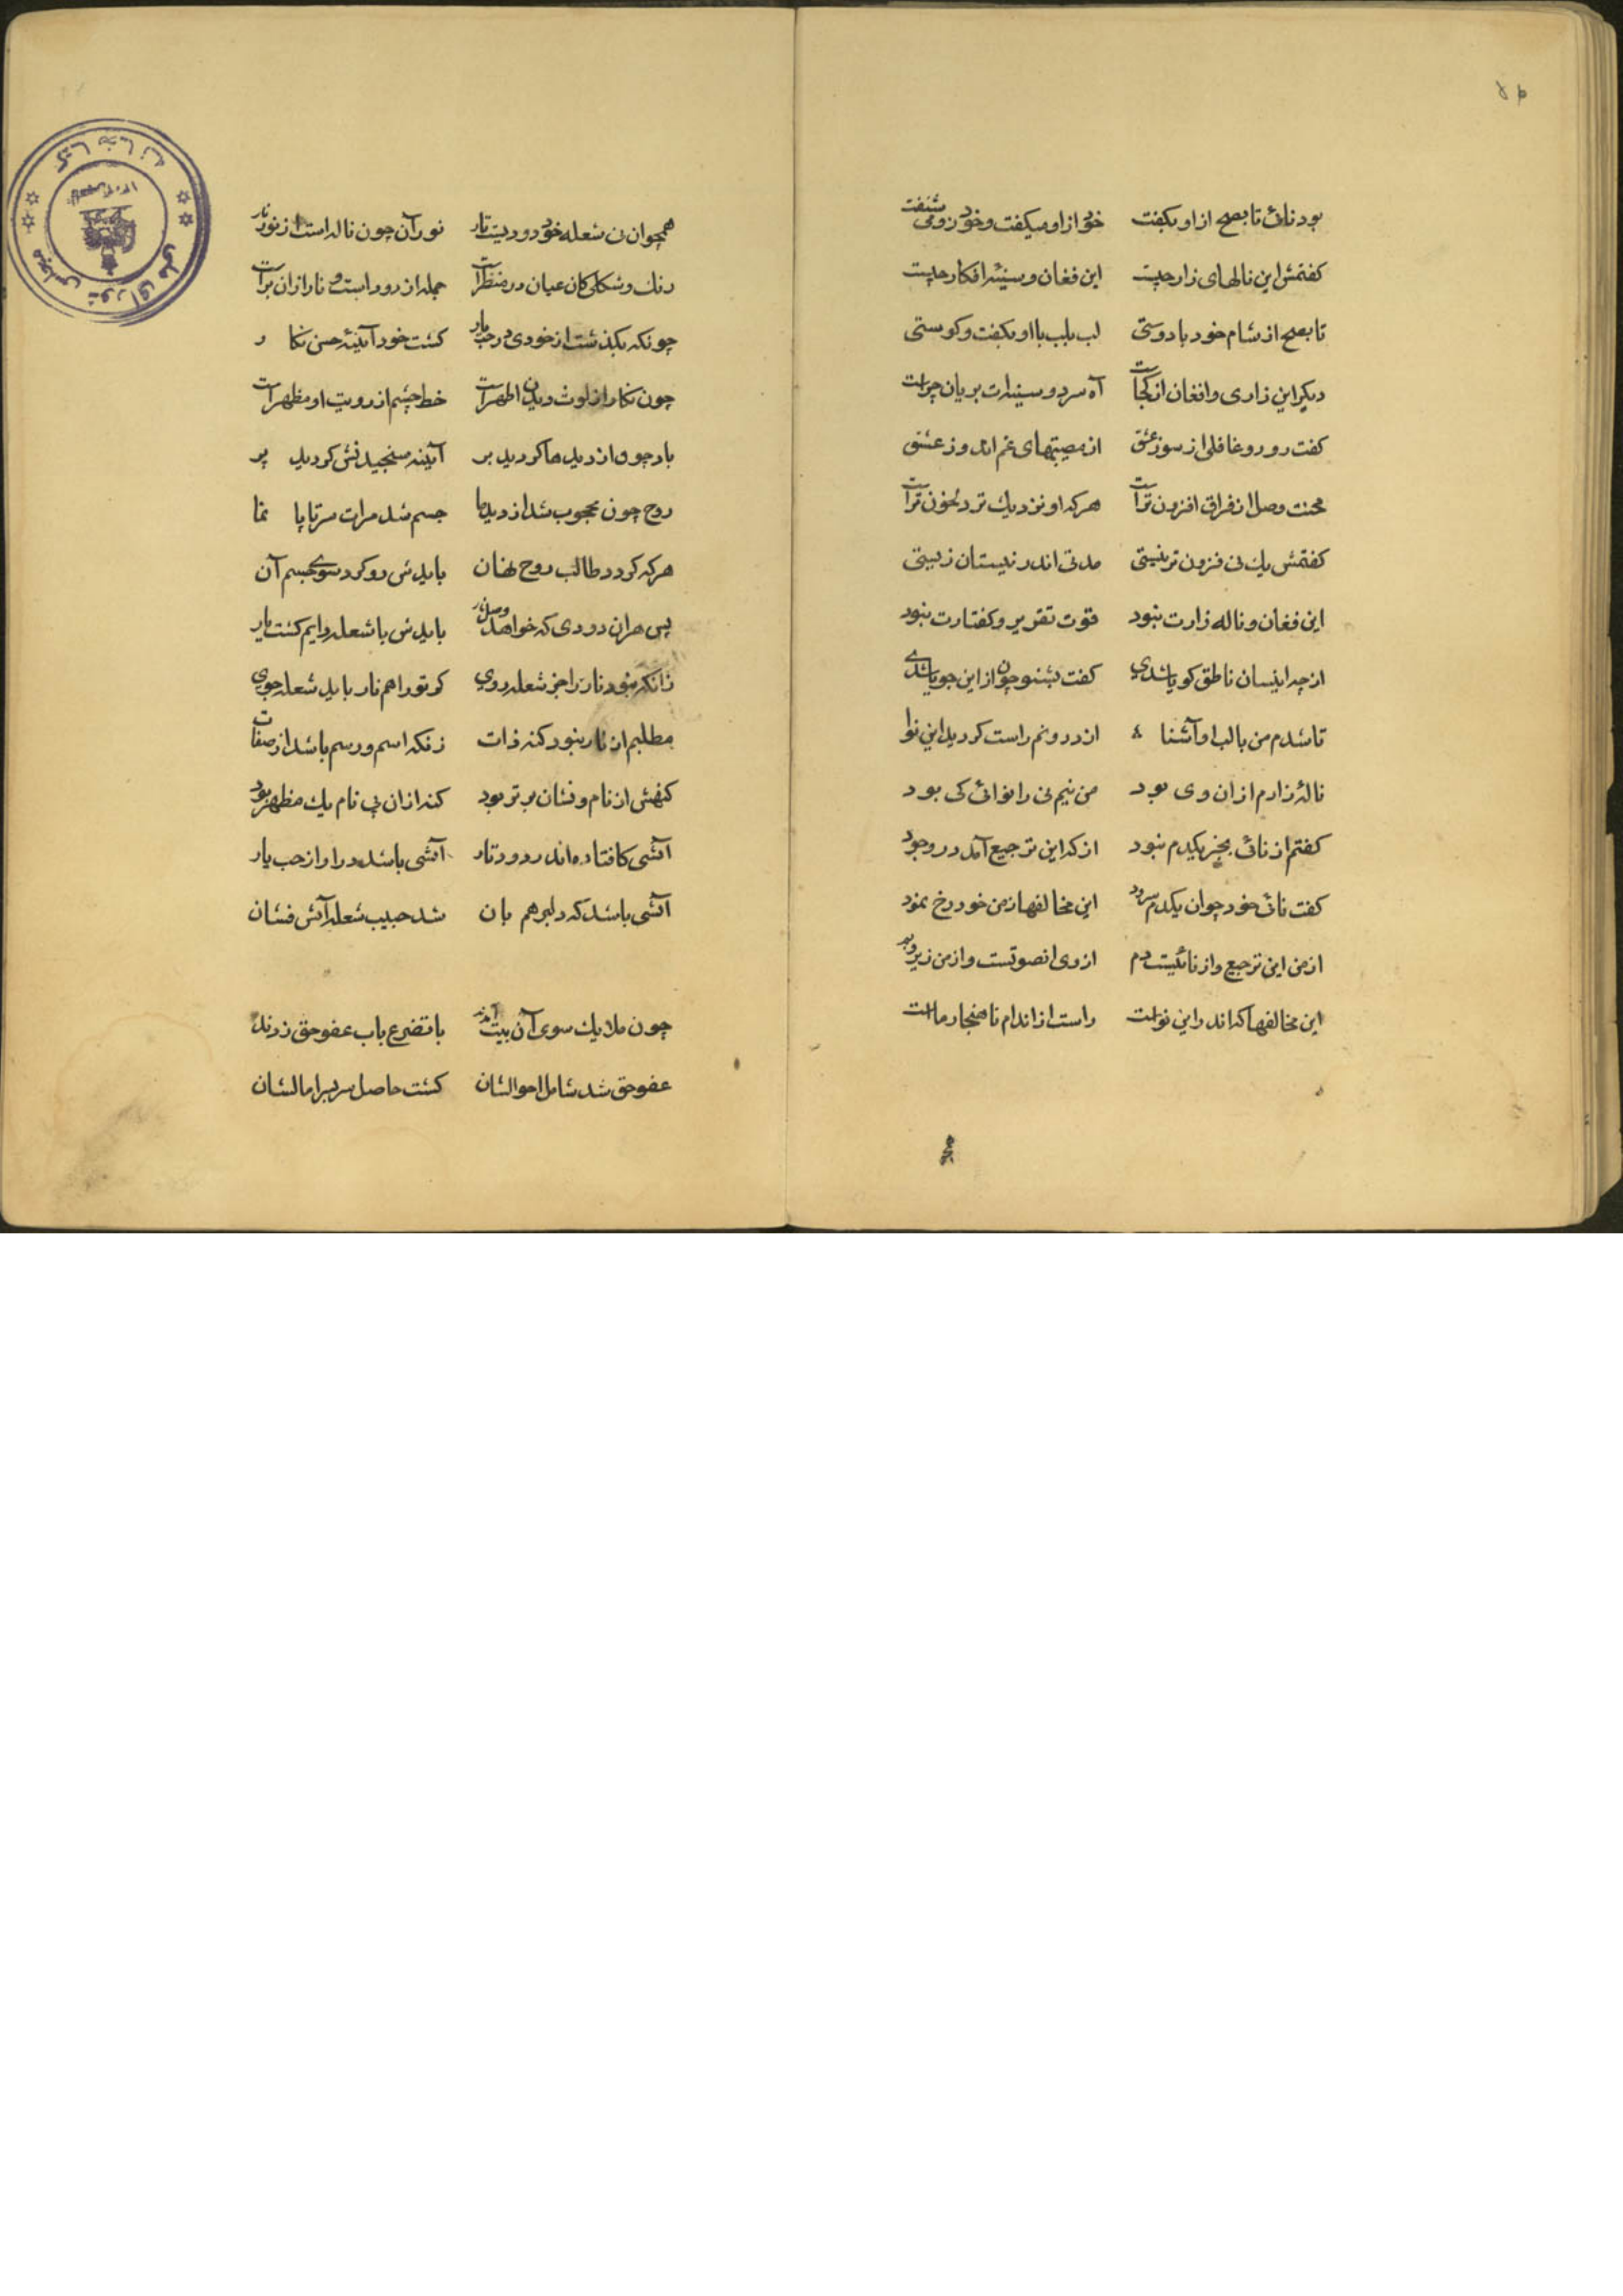 بود نائی تا بصبح از او بکفت خود از او میکفت و خود زو می شنفت
کفتمش این نالهای زار چیست این فغان و سینهٔ افکار چیست
تا بصبح از شام خود با دوستی لب بلب با او بکفت و کوستی
دیکر این زاری و افغان از کجاست آه سرد و سینه‌ات بریان چراست
کفت رو رو غافلی از سوز عشق از مصیبتهای غم اندوز عشق
محنت وصل از فراق افزون تر است هرکه او نزدیك تر دلخون تر است
کفتمش یك نی فزون تر نیستی مدتی اندر نیستان زیستی
این فغان و ناله زارت نبود قوت تقریر و کفتارت نبود
از چه اینسان ناطق کویا شدی کفت بشنو چون از این جویا شدی
تا شدم من با لب او آشنا از درونم راست کردید این نوا
نالهٔ زارم از ان وی بود من نیم نی را نوائی کی بود
کفتم از نائی بجز یکدم نبود از که این ترجیع آمد در وجود
کفت نائی خود چو ان یکدم سرود این مخالفها ز من خود رخ نمود
از من این ترجیع و از نائیست دم از وی انصوتست و از من زیر و بم
این مخالفها که اندر این نواست راست از اندام ناهنجار ماست
همچو ان نی شعله خود دودیست تار نور آن چون ناله است از نور نار
رنك و شکلی کان عیان در منظر است جمله از دود است و نار از ان بر است
چونکه بکذشت از خودی در حب یار کشت خود آئینهٔ حسن نکار
چون نکار از لوث دیدن اطهر است خط چشم از رویت او مظهر است
باد چون از دیدها کردید بر آئینه سنجیدنش کردید پر
روح چون محجوب شد از دیدها جسم شد مرات سر تا پا نما
هرکه کردد طالب روح نهان بایدش رو کرد سوی جسم آن
پس هران دودی که خواهد وصل نار بایدش با شعله دایم کشت یار
زانکه نبود نار را جز شعله روی کر تو را هم نار باید شعله جوی
مطلبم از نار نبود کنه ذات زنکه اسم و رسم باشد از صفات
کنهش از نام و نشان بر تر بود کنه از ان بی نام یك مظهر بود
آتشی کافتاده اندر دود تار آتشی باشد در او از حب یار
آتشی باشد که دلبر هم بان شد حبیب شعله آتش فشان
چون ملایك سوی آن بیت آمدند با تضرع باب عفو حق زدند
عفو حق شد شامل احوالشان کشت حاصل سر بسر امالشان
کتابخانه
مجلس شورای ملی